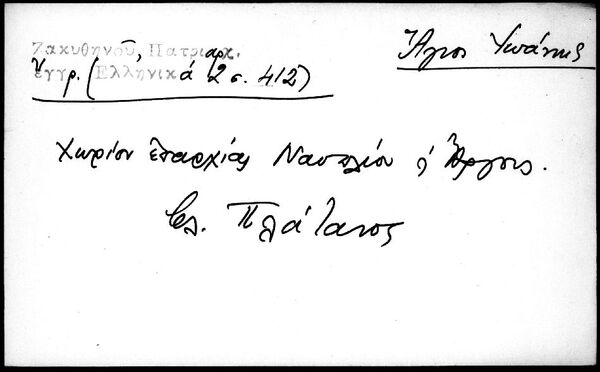 Ζακυθηνοῦ, Πατριαρχ.
ἔγγρ. (Ἑλληνικά 2 σ. 412)
Ἅγιος Ἰωάννης
Χωρίον ἐπαρχίας Ναυπλίου ἢ Ἄργους.
Βλ. Πλάτανος